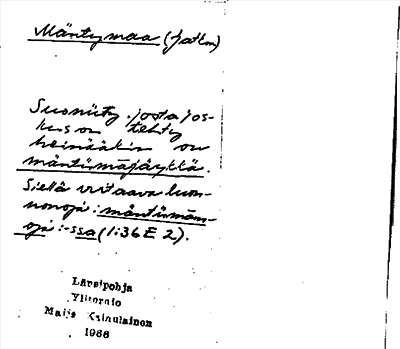 Mäntymaa (jatkn)
Suoniitty, josta jos-
kus on tehty
heinääkin on
mäntümājäykkä.
Siellä virtaava luon-
nonoja: mäntümām-
oja: -ssa (1:36 E 2).
Länsipohja
Ylitornio
Maija Kainulainen
1966